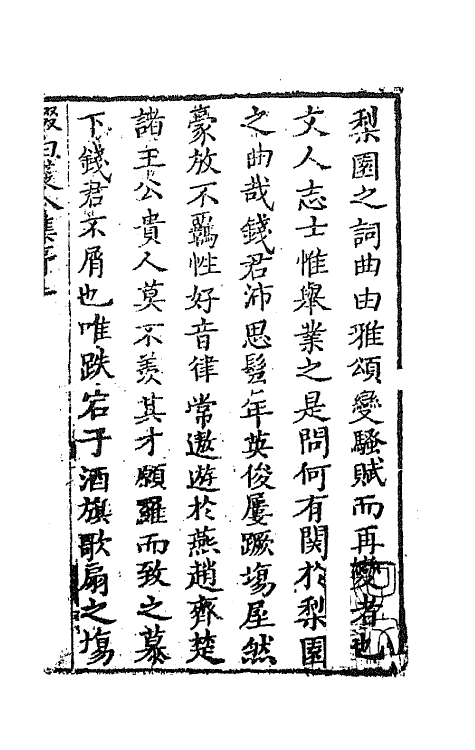 梨園之詞曲由雅頌變騷賦而再變者也
文人志士惟舉業之是問何有關於梨園
之曲哉錢君沛思髫年英俊屢蹶塲屋然
豪放不羈性好音律常遨遊於燕趙齊楚
諸王公貴人莫不羨其才願羅而致之慕
下錢君不屑也唯跌宕于酒旗歌扇之塲